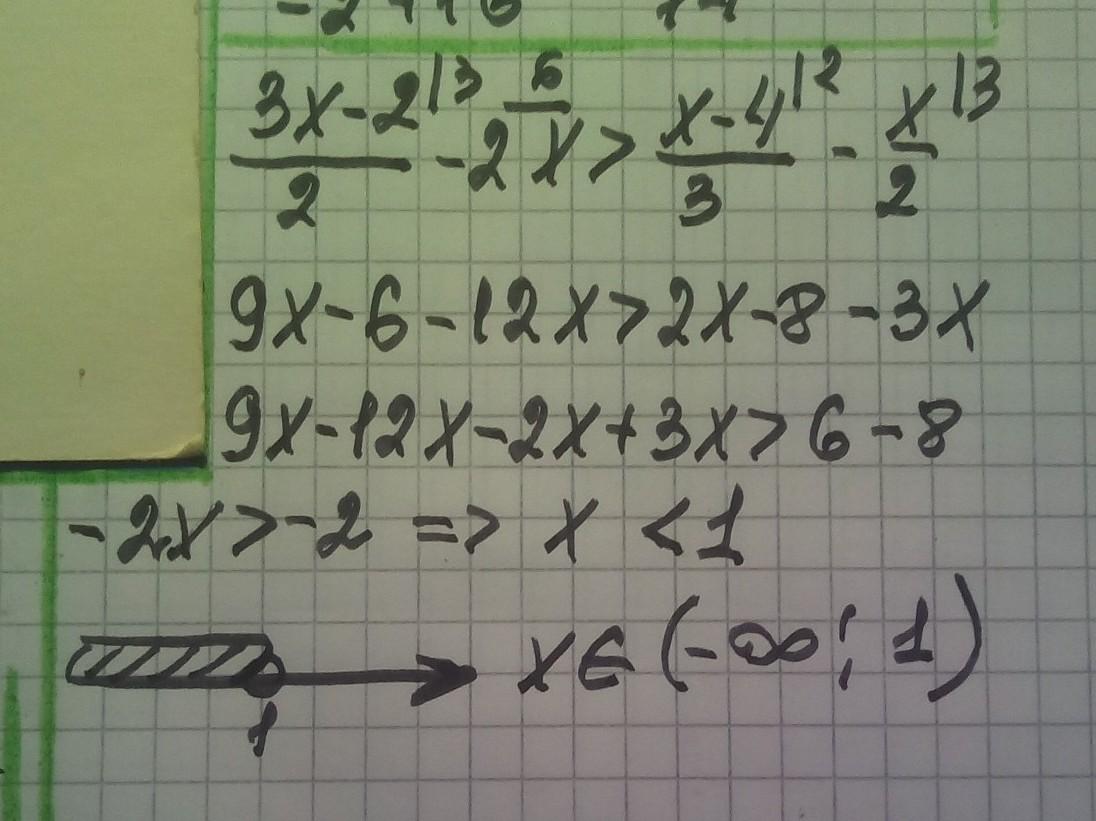 (3x-2)/2 |3 - 2x |6 > (x-4)/3 |2 - x/2 |3
9x-6-12x>2x-8-3x
9x-12x-2x+3x>6-8
-2x>-2 => x <1
x∈(-∞;1)
1